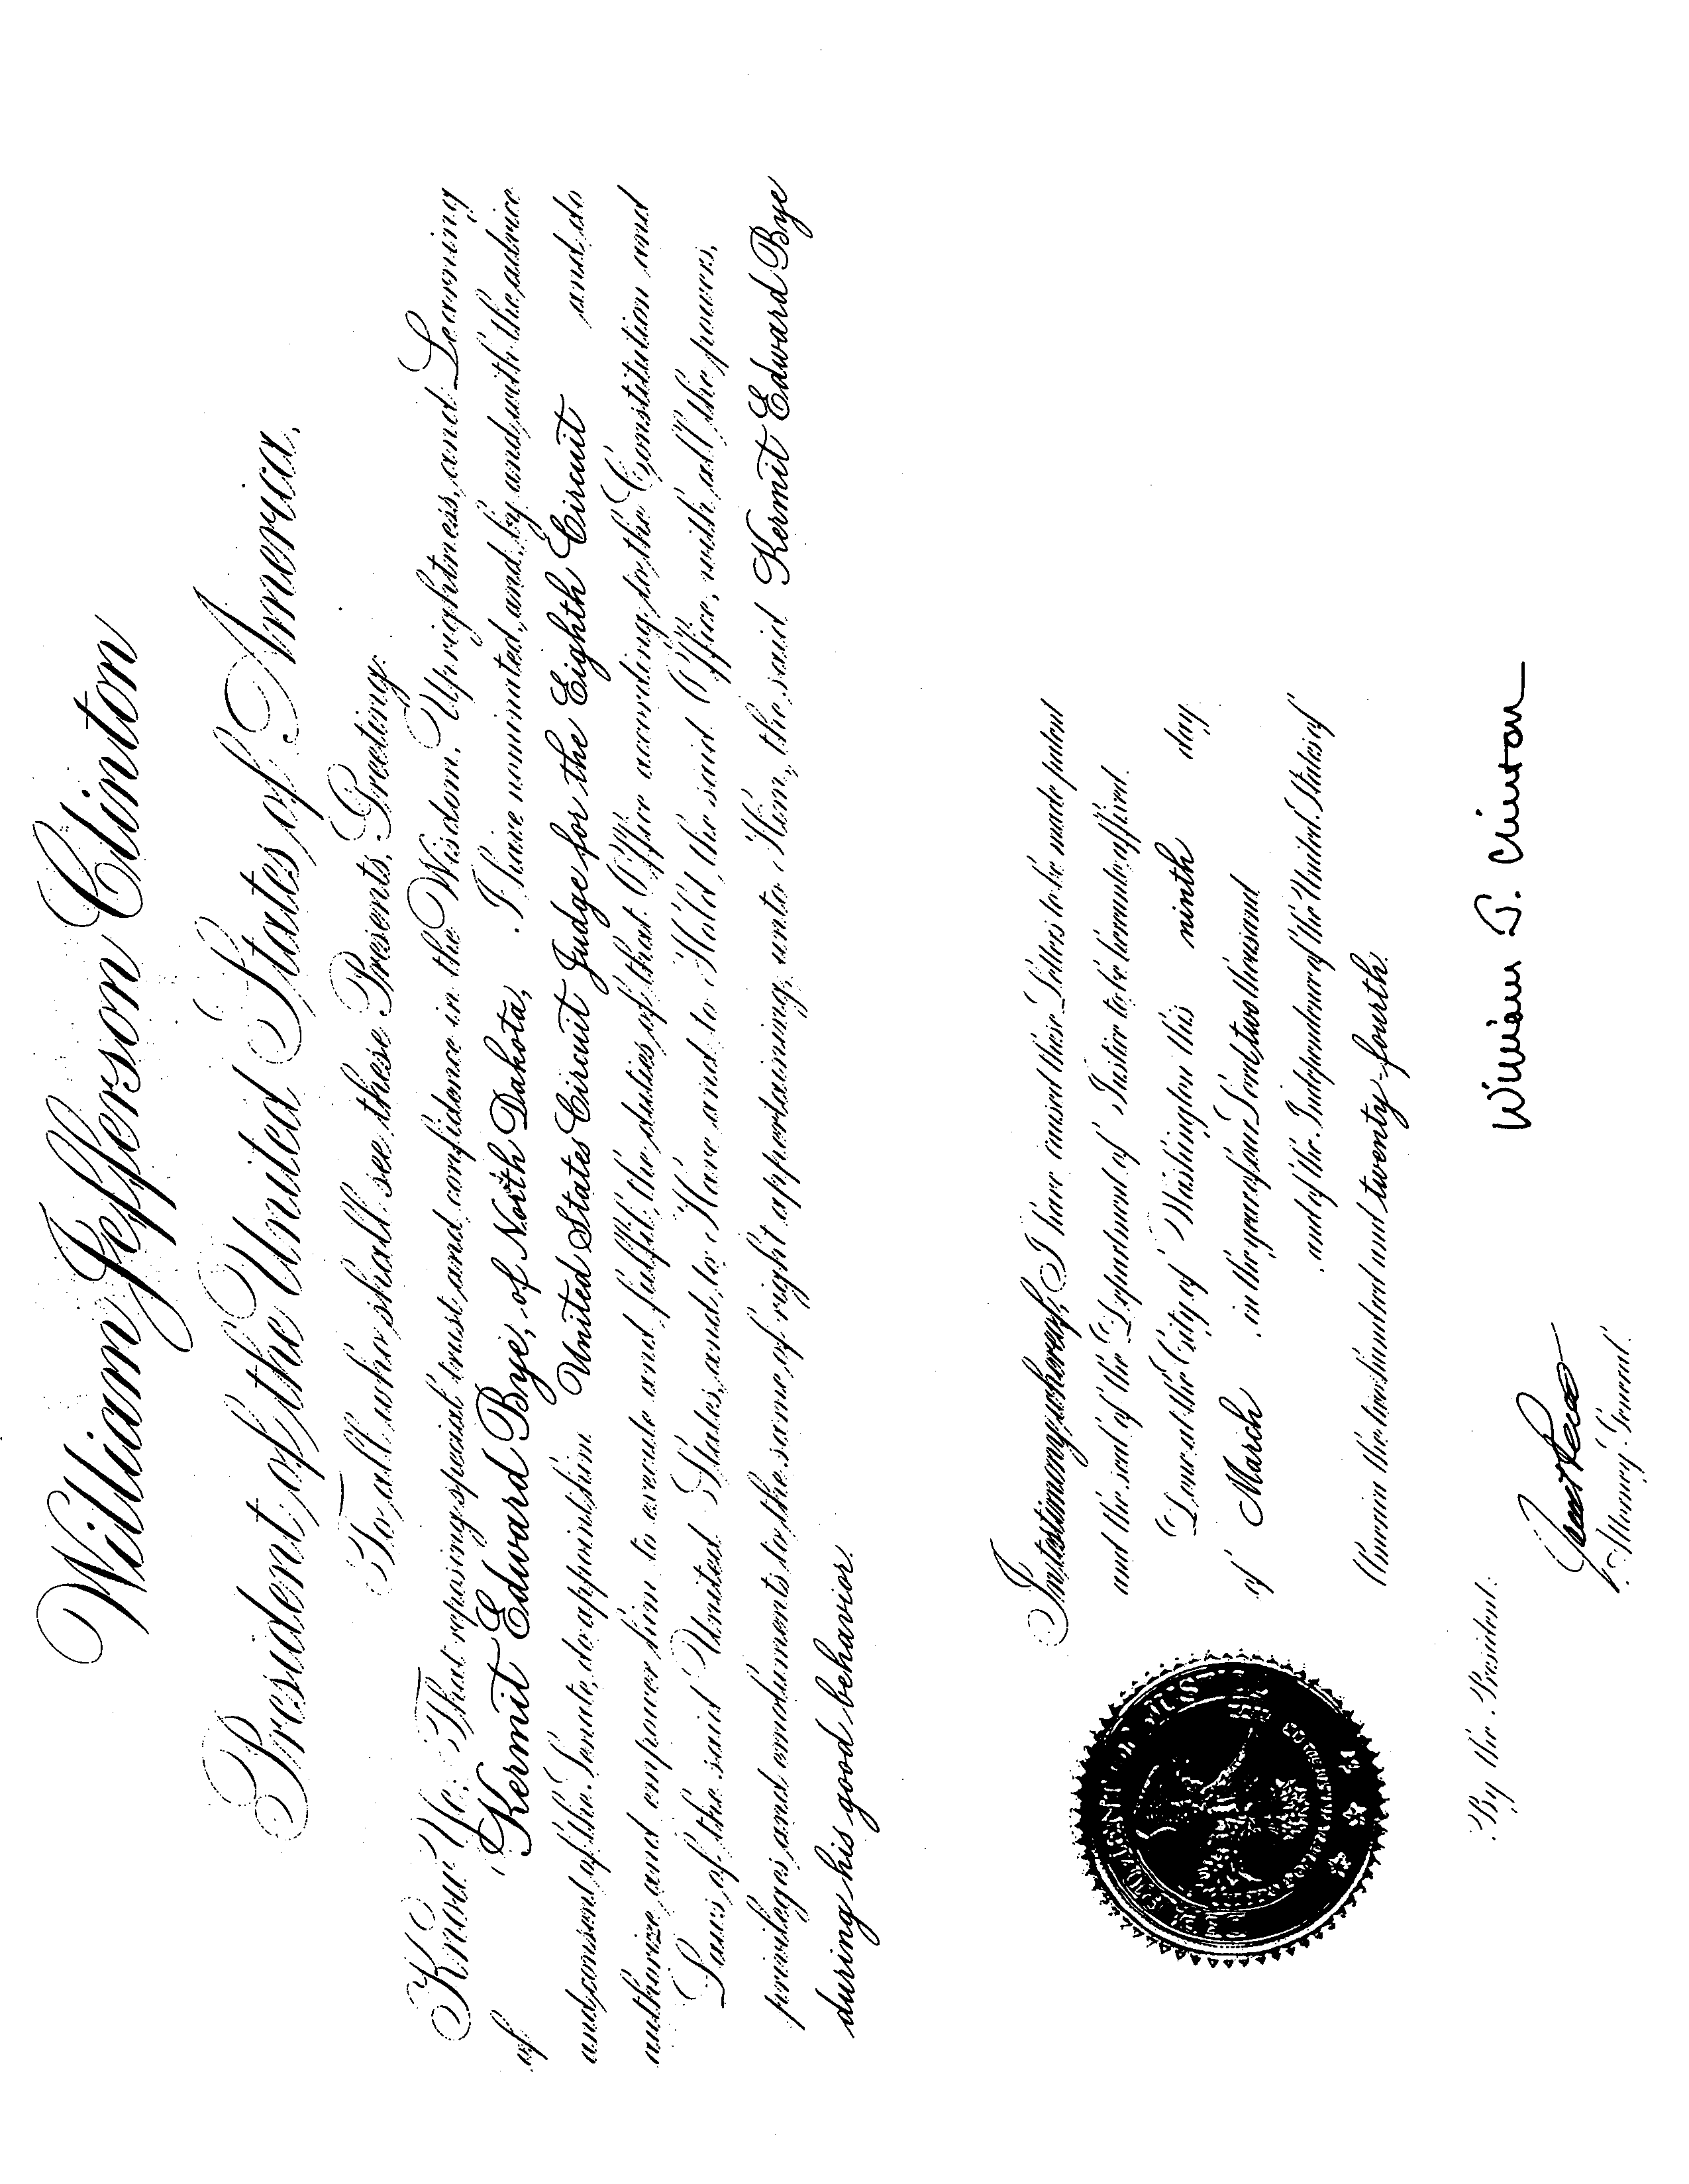 William Jefferson Clinton
President of the United States of America.
To all who shall see these Presents, Greeting:
Know Ye; That reposing special trust and confidence in the Wisdom, Uprightness, and Learning
of Kermit Edward Bye, of North Dakota, I have nominated, and, by and with the advice
and consent of the Senate, do appoint him United States Circuit Judge for the Eighth Circuit and do
authorize and empower him to execute and fulfil the duties of that Office according to the Constitution and
Laws of the said United States, and to Have and to Hold the said Office, with all the powers,
privileges and emoluments to the same of right appertaining, unto Him, the said Kermit Edward Bye
during his good behavior.
In testimony whereof, I have caused these Letters to be made patent
and the seal of the Department of Justice to be hereunto affixed.
Done at the City of Washington this ninth day
of March in the year of our Lord two thousand
and of the Independence of the United States of
America the two hundred and twenty-fourth.
William J. Clinton
By the President:
Janet Reno
Attorney General.